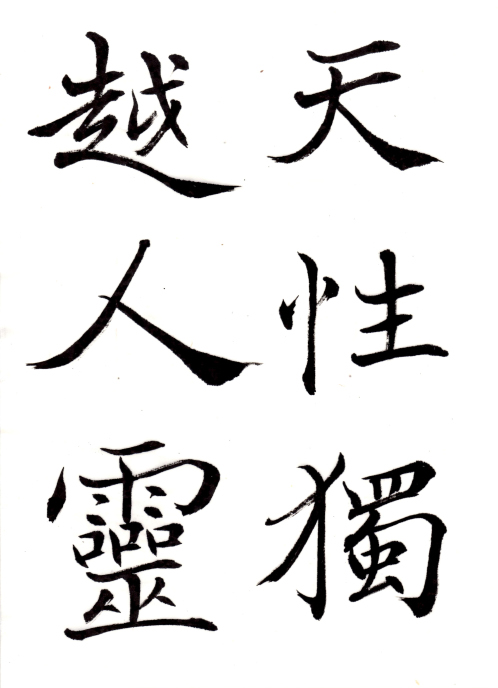 天性獨
越人靈